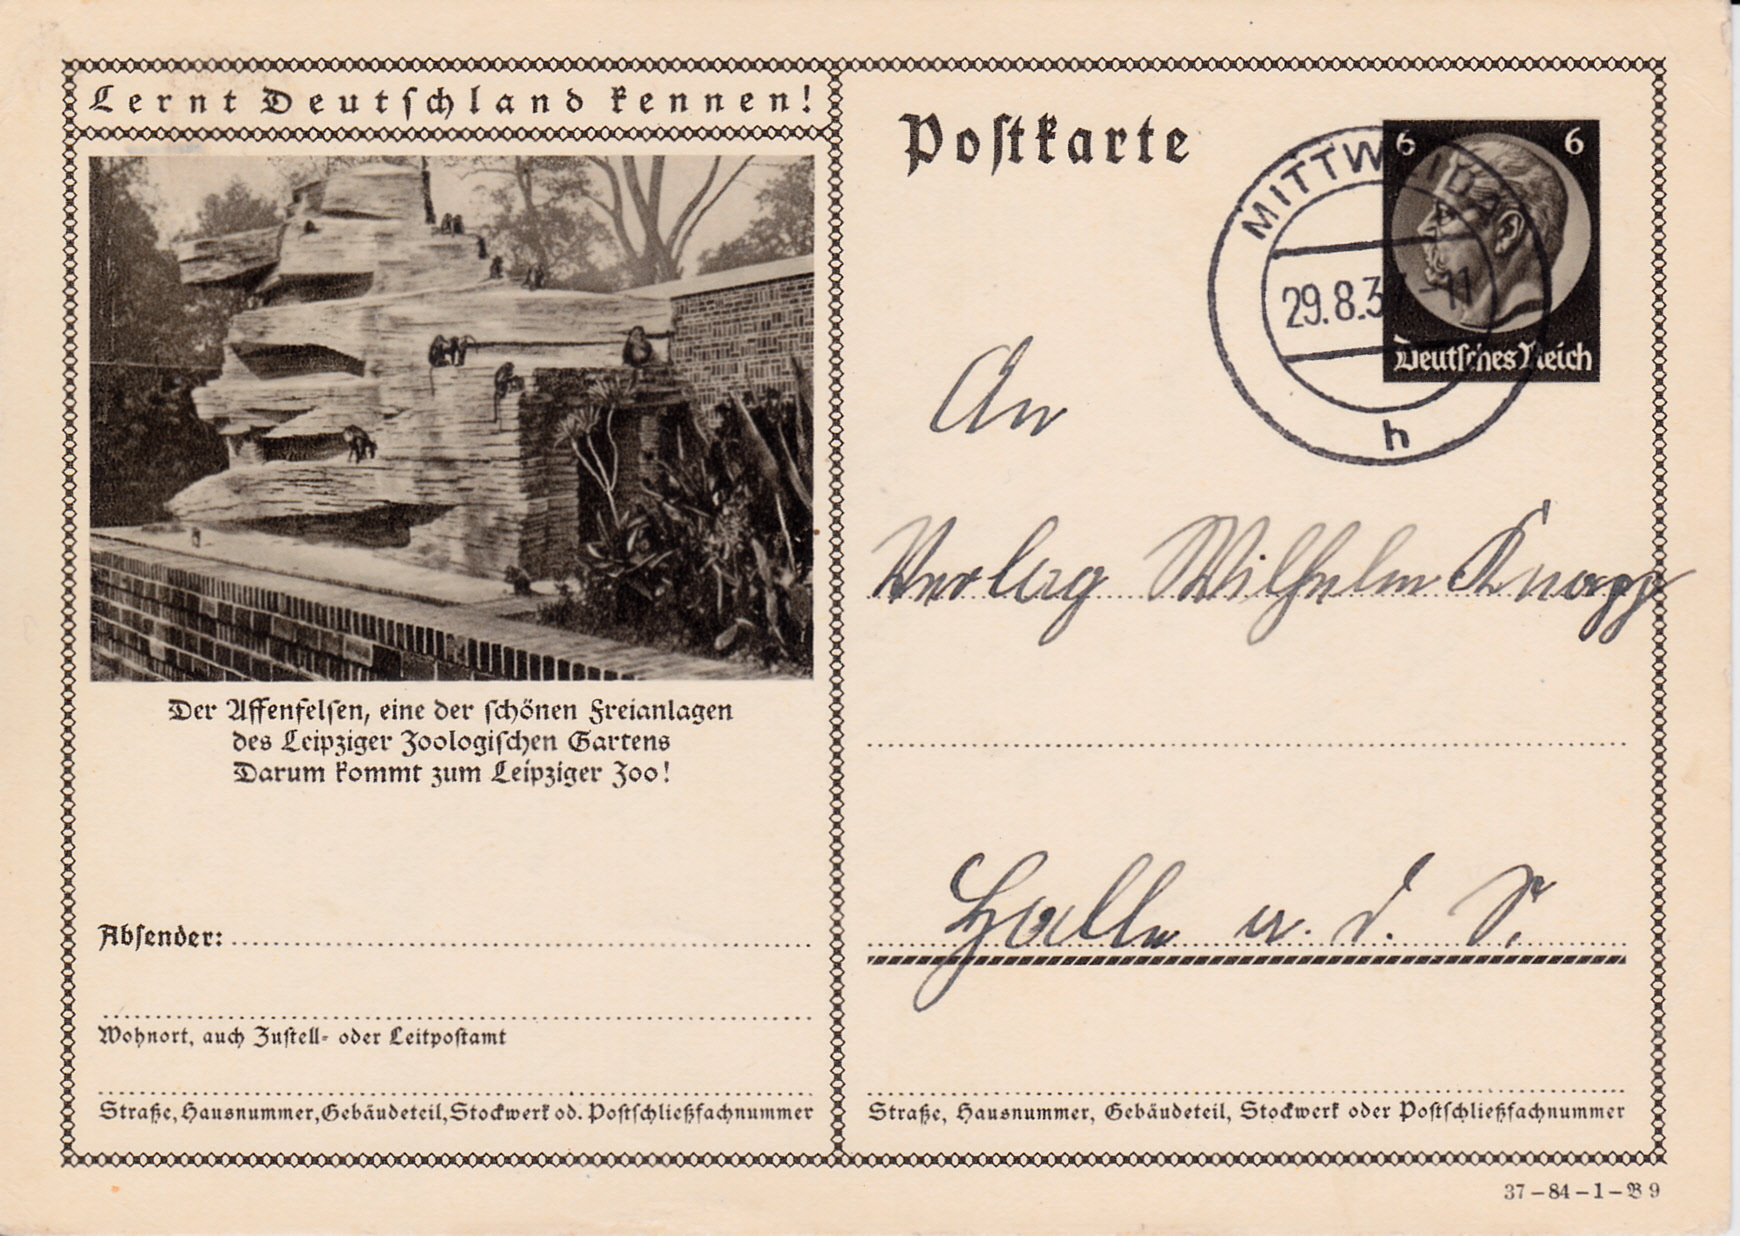 Lernt Deutschland kennen!
Der Affenfelsen, eine der schönen Freianlagen
des Leipziger Zoologischen Gartens
Darum kommt zum Leipziger Zoo!
Absender:
Wohnort, auch Zustell- oder Leitpostamt
Straße, Hausnummer, Gebäudeteil, Stockwerk od. Postschließfachnummer
Postkarte
6 6
Deutsches Reich
MITTWEIDA
29.8.3 -11
h
An
Verlag Wilhelm Knapp
Halle a. d. S.
Straße, Hausnummer, Gebäudeteil, Stockwerk oder Postschließfachnummer
37-84-1-B 9